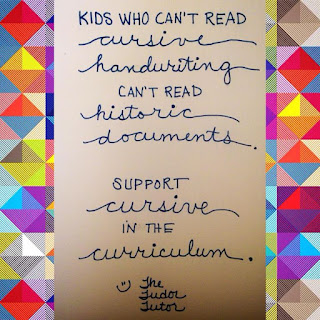 KIDS WHO CAN'T READ
cursive
handwriting
CAN'T READ
historic
documents.
SUPPORT
cursive
IN THE
curriculum.
The
Tudor
Tutor